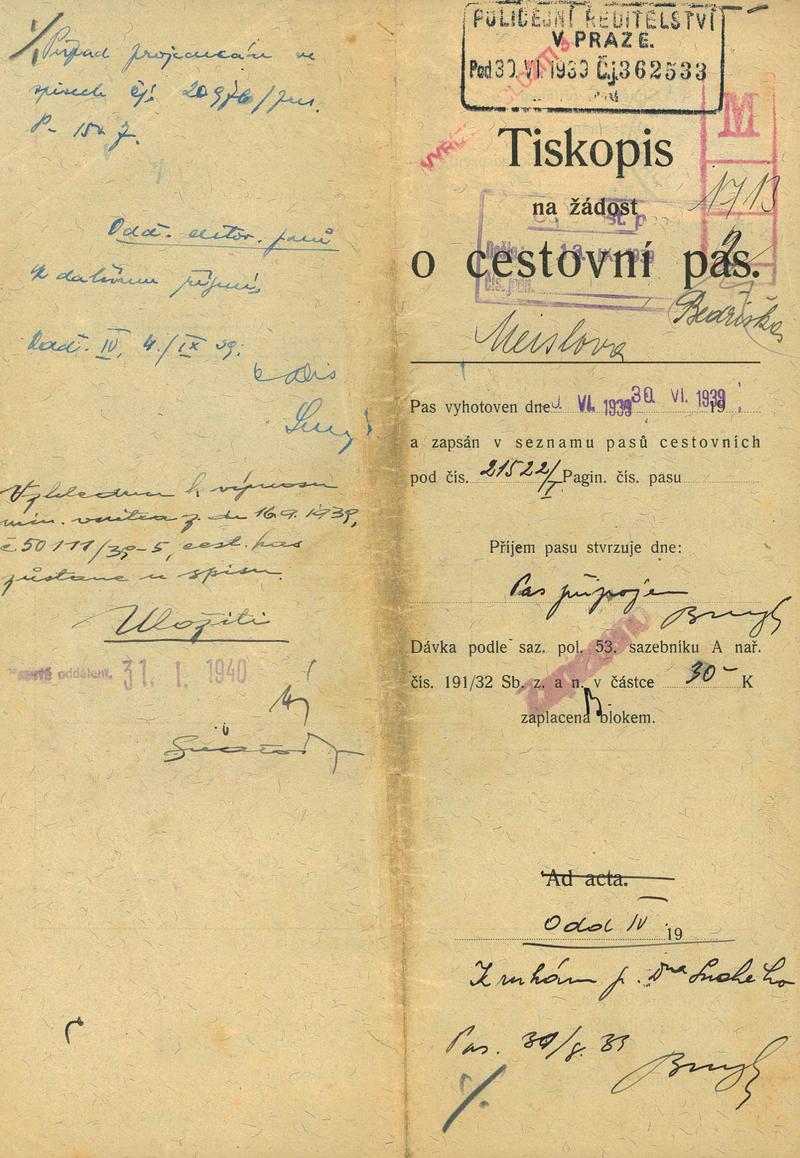 Případ projednáván ve
spisech čj. 20976/
P-
Odd.
K dalšímu řízení
Odd. IV, 4./IX 39.
Vzhledem k výnosu
min. vnitra z. de 16.9.1939,
č 50111/39-5, cest. pas
zůstane u spisu.
Uložiti
oddělení. 31. I. 1940
POLICEJNÍ ŘEDITELSTVÍ
V PRAZE.
Pod 30 VI 1939 Čj. 362533
M
Tiskopis
na žádost
1713
2
o cestovní pas.
Došlo: 13. IX. 1939
Čís. jedn.
Meislova Bedřiška
Pas vyhotoven dne VI. 1939 30. VI. 1939 19
a zapsán v seznamu pasů cestovních
pod čís. 21522/I Pagin. čís. pasu
Příjem pasu stvrzuje dne:
Pas připojen
Dávka podle saz. pol. 53. sazebníku A nař.
čís. 191/32 Sb. z. a n. v částce 30- K
zaplacena blokem.
Ad acta.
Odd IV 19
K rukám p. Dra Suchého
Pas. 30/8. 39